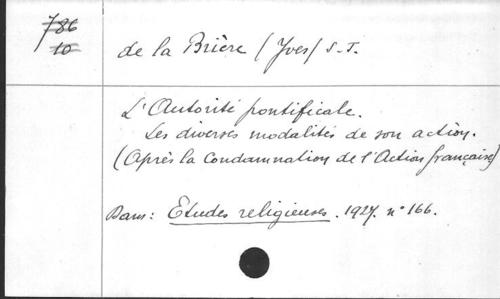 786
10
de la Brière (Yves) S.J.
L'Autorité pontificale.
Les diverses modalités de son action.
(Après la Condamnation de l'Action française)
Dans: Etudes religieuses. 1927. n° 166.